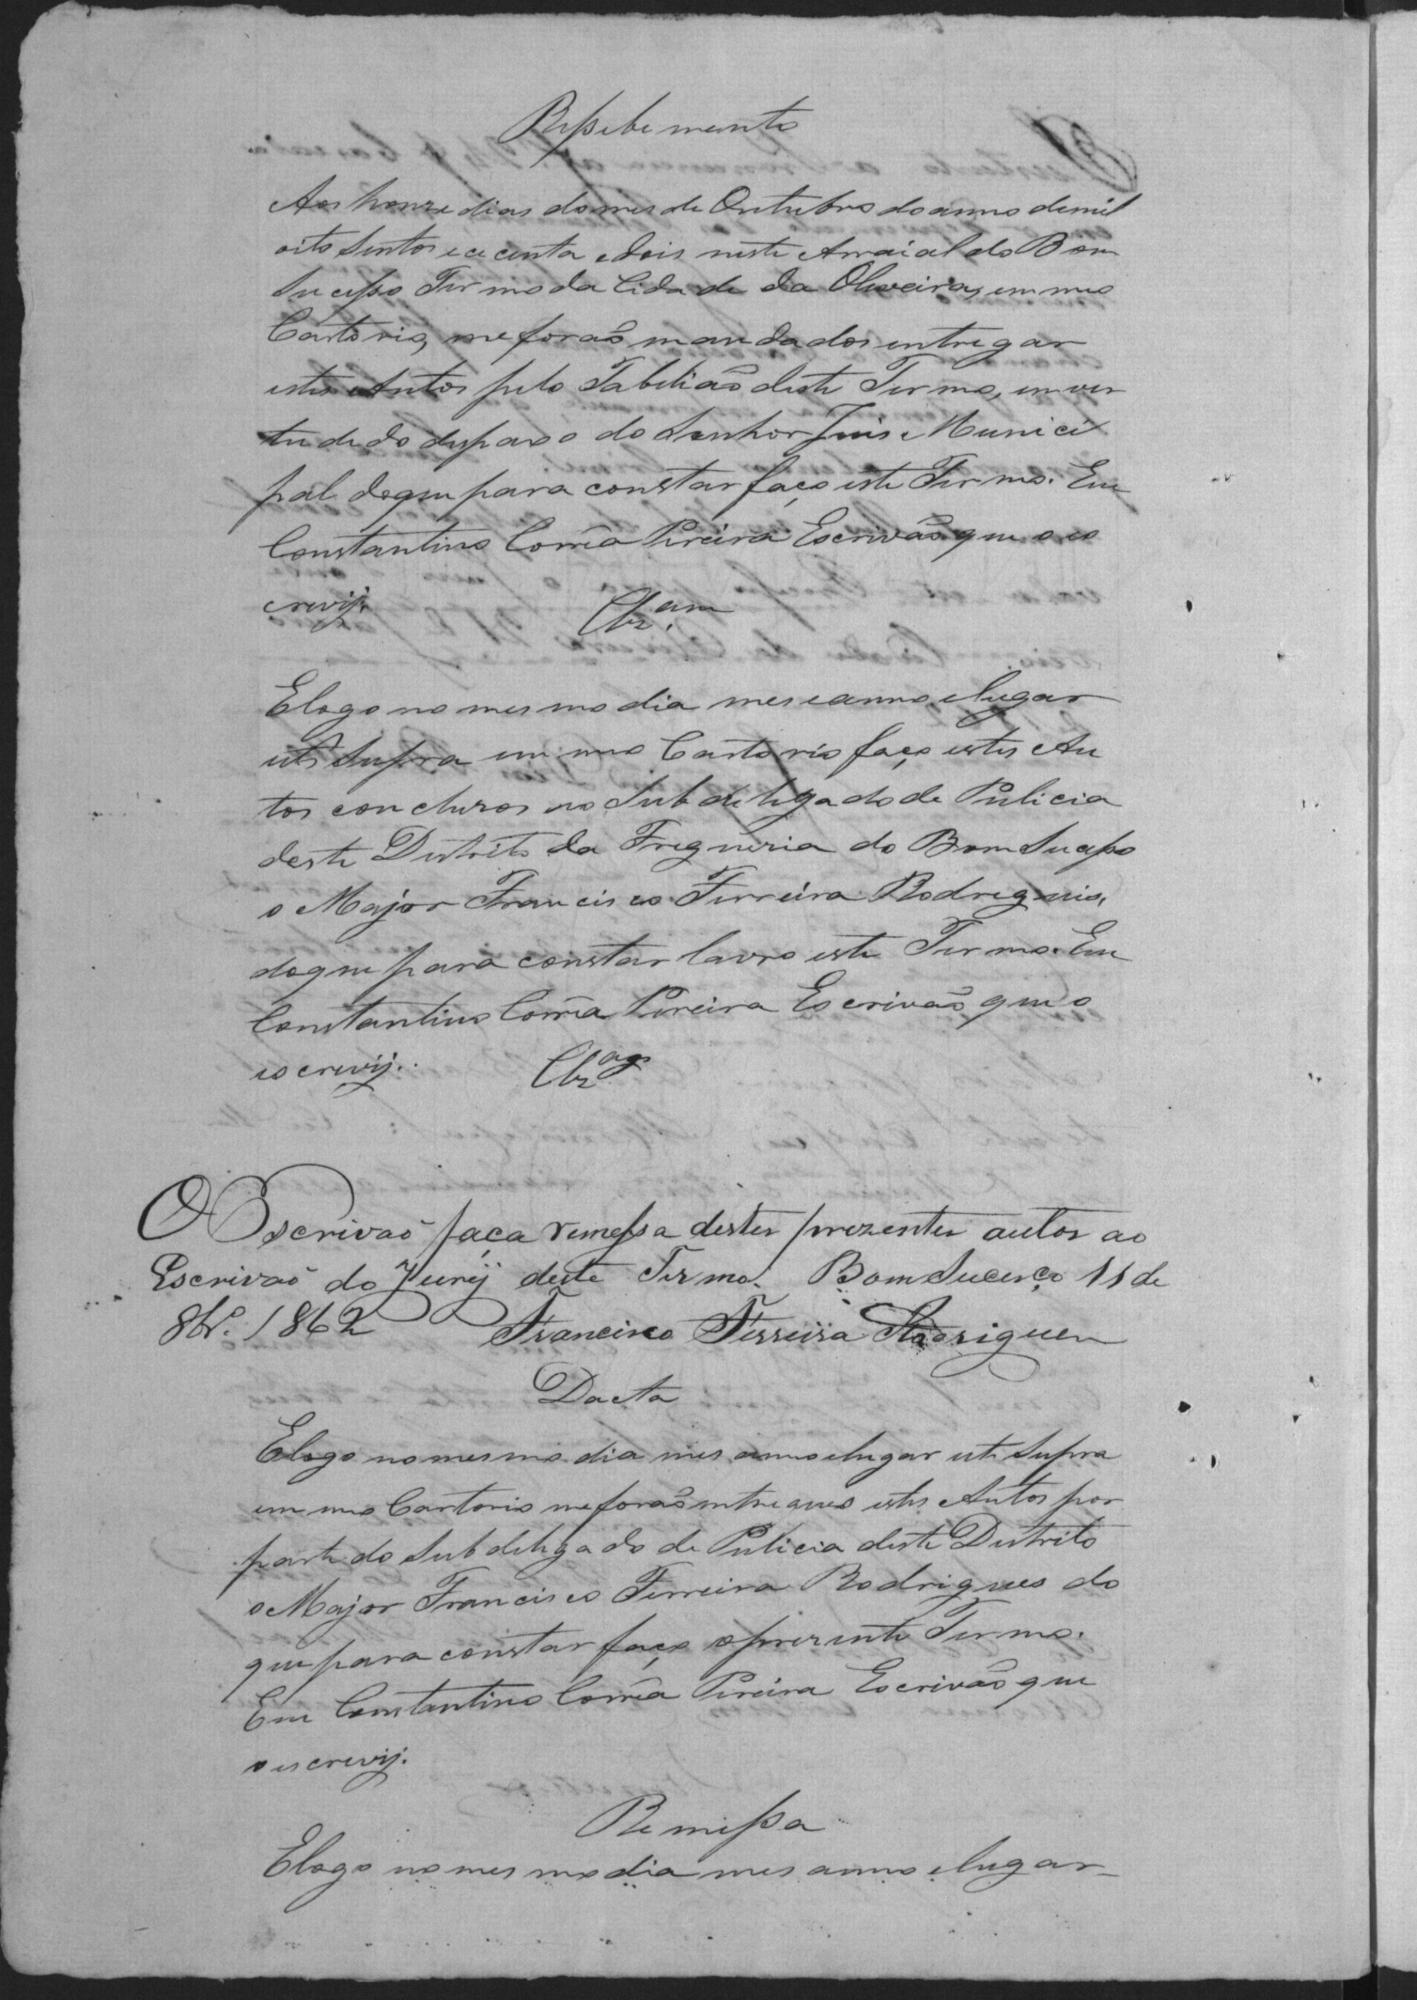 Ressebemento
Aos honze dias do mes de Outubro do anno de mil
oito sentos e cecenta e dois neste Arraial do Bom
Sucesso Termo da Cidade da Oliveira, em meo
Cartorio, me foraõ mandados entregar
estes Autos pelo Tabeliaõ deste Termo, em ver
tude do despaxo do Senhor Juis Munici
pal do que para constar faço este Termo. Eu
Constantino Corrêa Pireira Escrivaõ que o es
crevij.
Clz.am
E logo no mesmo dia mes e anno e lugar
uti Supra em meo Cartorio faço estes Au
tos concluzos ao Subdeligado de Pulicia
deste Distrito da Freguezia do Bom Sucesso
o Major Francisco Ferreira Rodrigues,
do que para constar lavro este Termo. Eu
Constantino Corrêa Pireira Escrivaõ que o
escrevij.
Clz
O Escrivaõ faça remessa destes prezentes autos ao
Escrivaõ do Jurÿ deste Termo. Bom Sucerço 11 de
8br.o 1862 Francisco Ferreira Rodriguen
Dacta
E logo no mesmo dia mes anno e lugar uti Supra
em meo Cartorio me foraõ entregues estes Autos por
parte do Subdeligado de Pulicia deste Distrito
o Major Francisco Ferreira Rodrigues do
que para constar faço o prezente Termo.
Eu Constantino Corrêa Pireira Escrivaõ que
o escrevij.
Remissa
E logo no mesmo dia mes anno e lugar